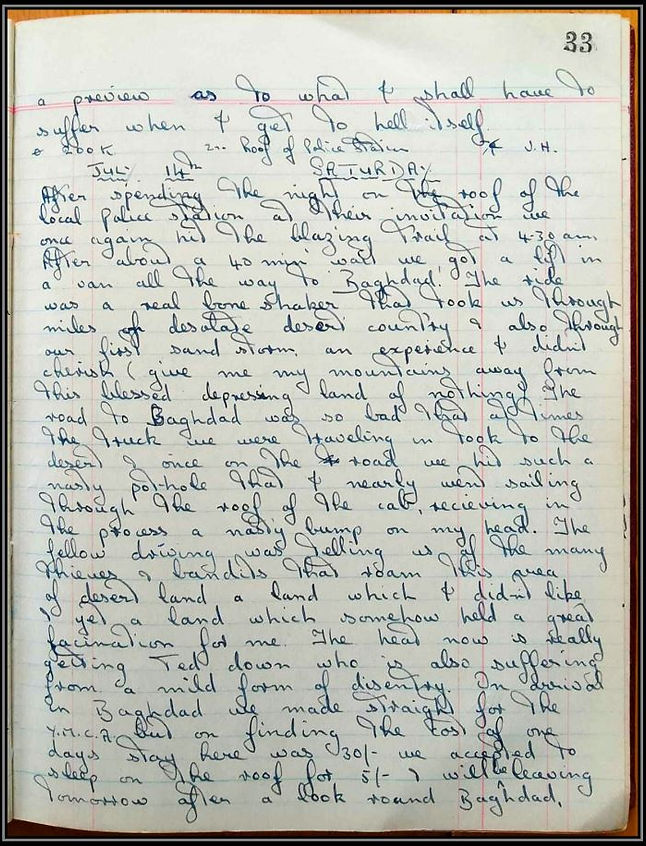 33
a preview as to what I shall have to
suffer when I get to hell itself
200 K. Roof of Police Station J.H.
JULY 14th SATURDAY
After spending the night on the roof of the
local police station at their invitation we
once again hit the blazing trail at 4-30 am.
After about a 40 min wait we got a lift in
a van all the way to Baghdad. The ride
was a real bone shaker that took us through
miles of desolate desert country & also through
our first sand storm, an experience I didnt
cherish (give me my mountains away from
this blessed depressing land of nothing) The
road to Baghdad was so bad that at times
the truck we were traveling in took to the
desert & once on the road we hit such a
nasty pot-hole that I nearly went sailing
through the roof of the cab, recieving in
the process a nasty bump on my head. The
fellow driving was telling us of the many
thieves & bandits that roam this area
of desert land a land which I didnt like
& yet a land which somehow held a great
facination for me. The heat now is really
getting Ted down who is also suffering
from a mild form of disentry. On arrival
in Baghdad we made straight for the
Y.M.C.A. but on finding the cost of one
days stay here was 30/- we accepted to
sleep on the roof for 5/- & will be leaving
tomorrow after a look round Baghdad.